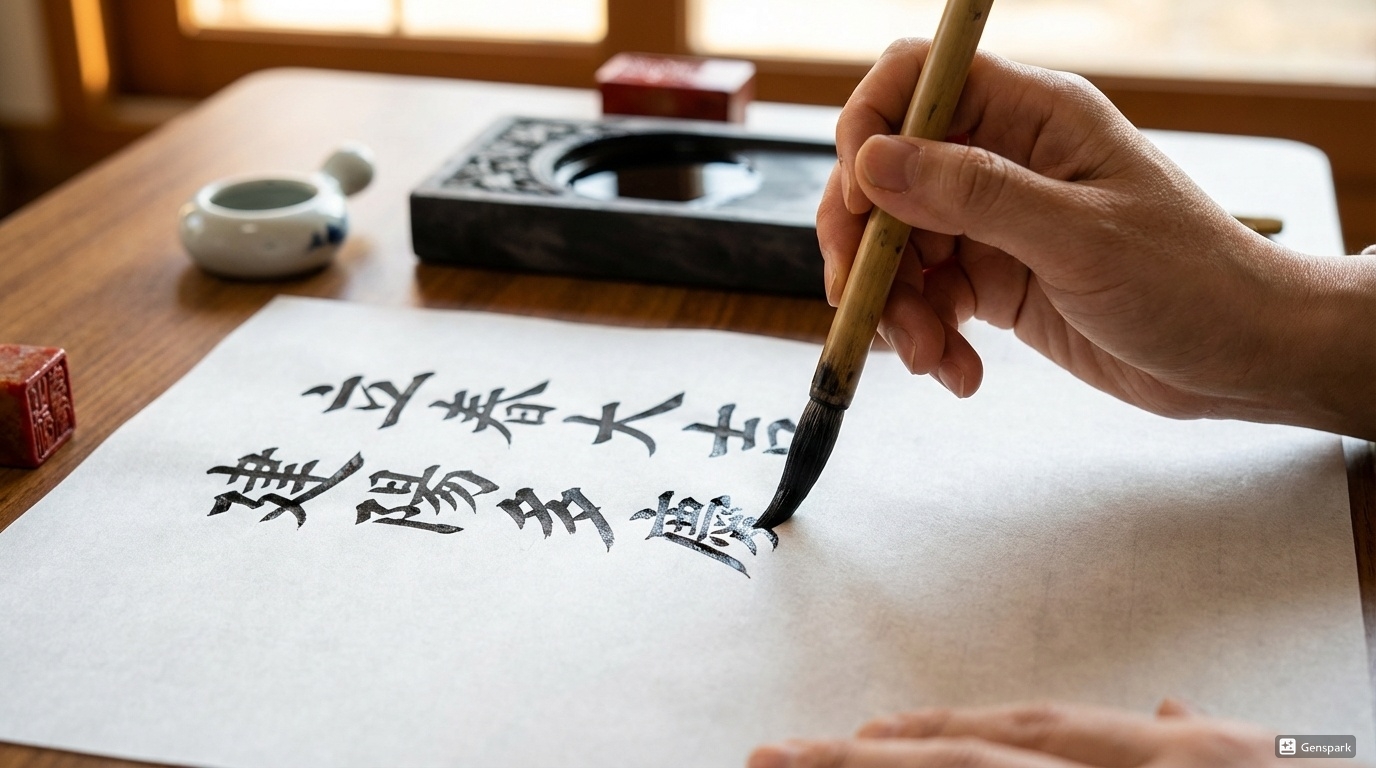 立春大吉
建陽多慶
Genspark